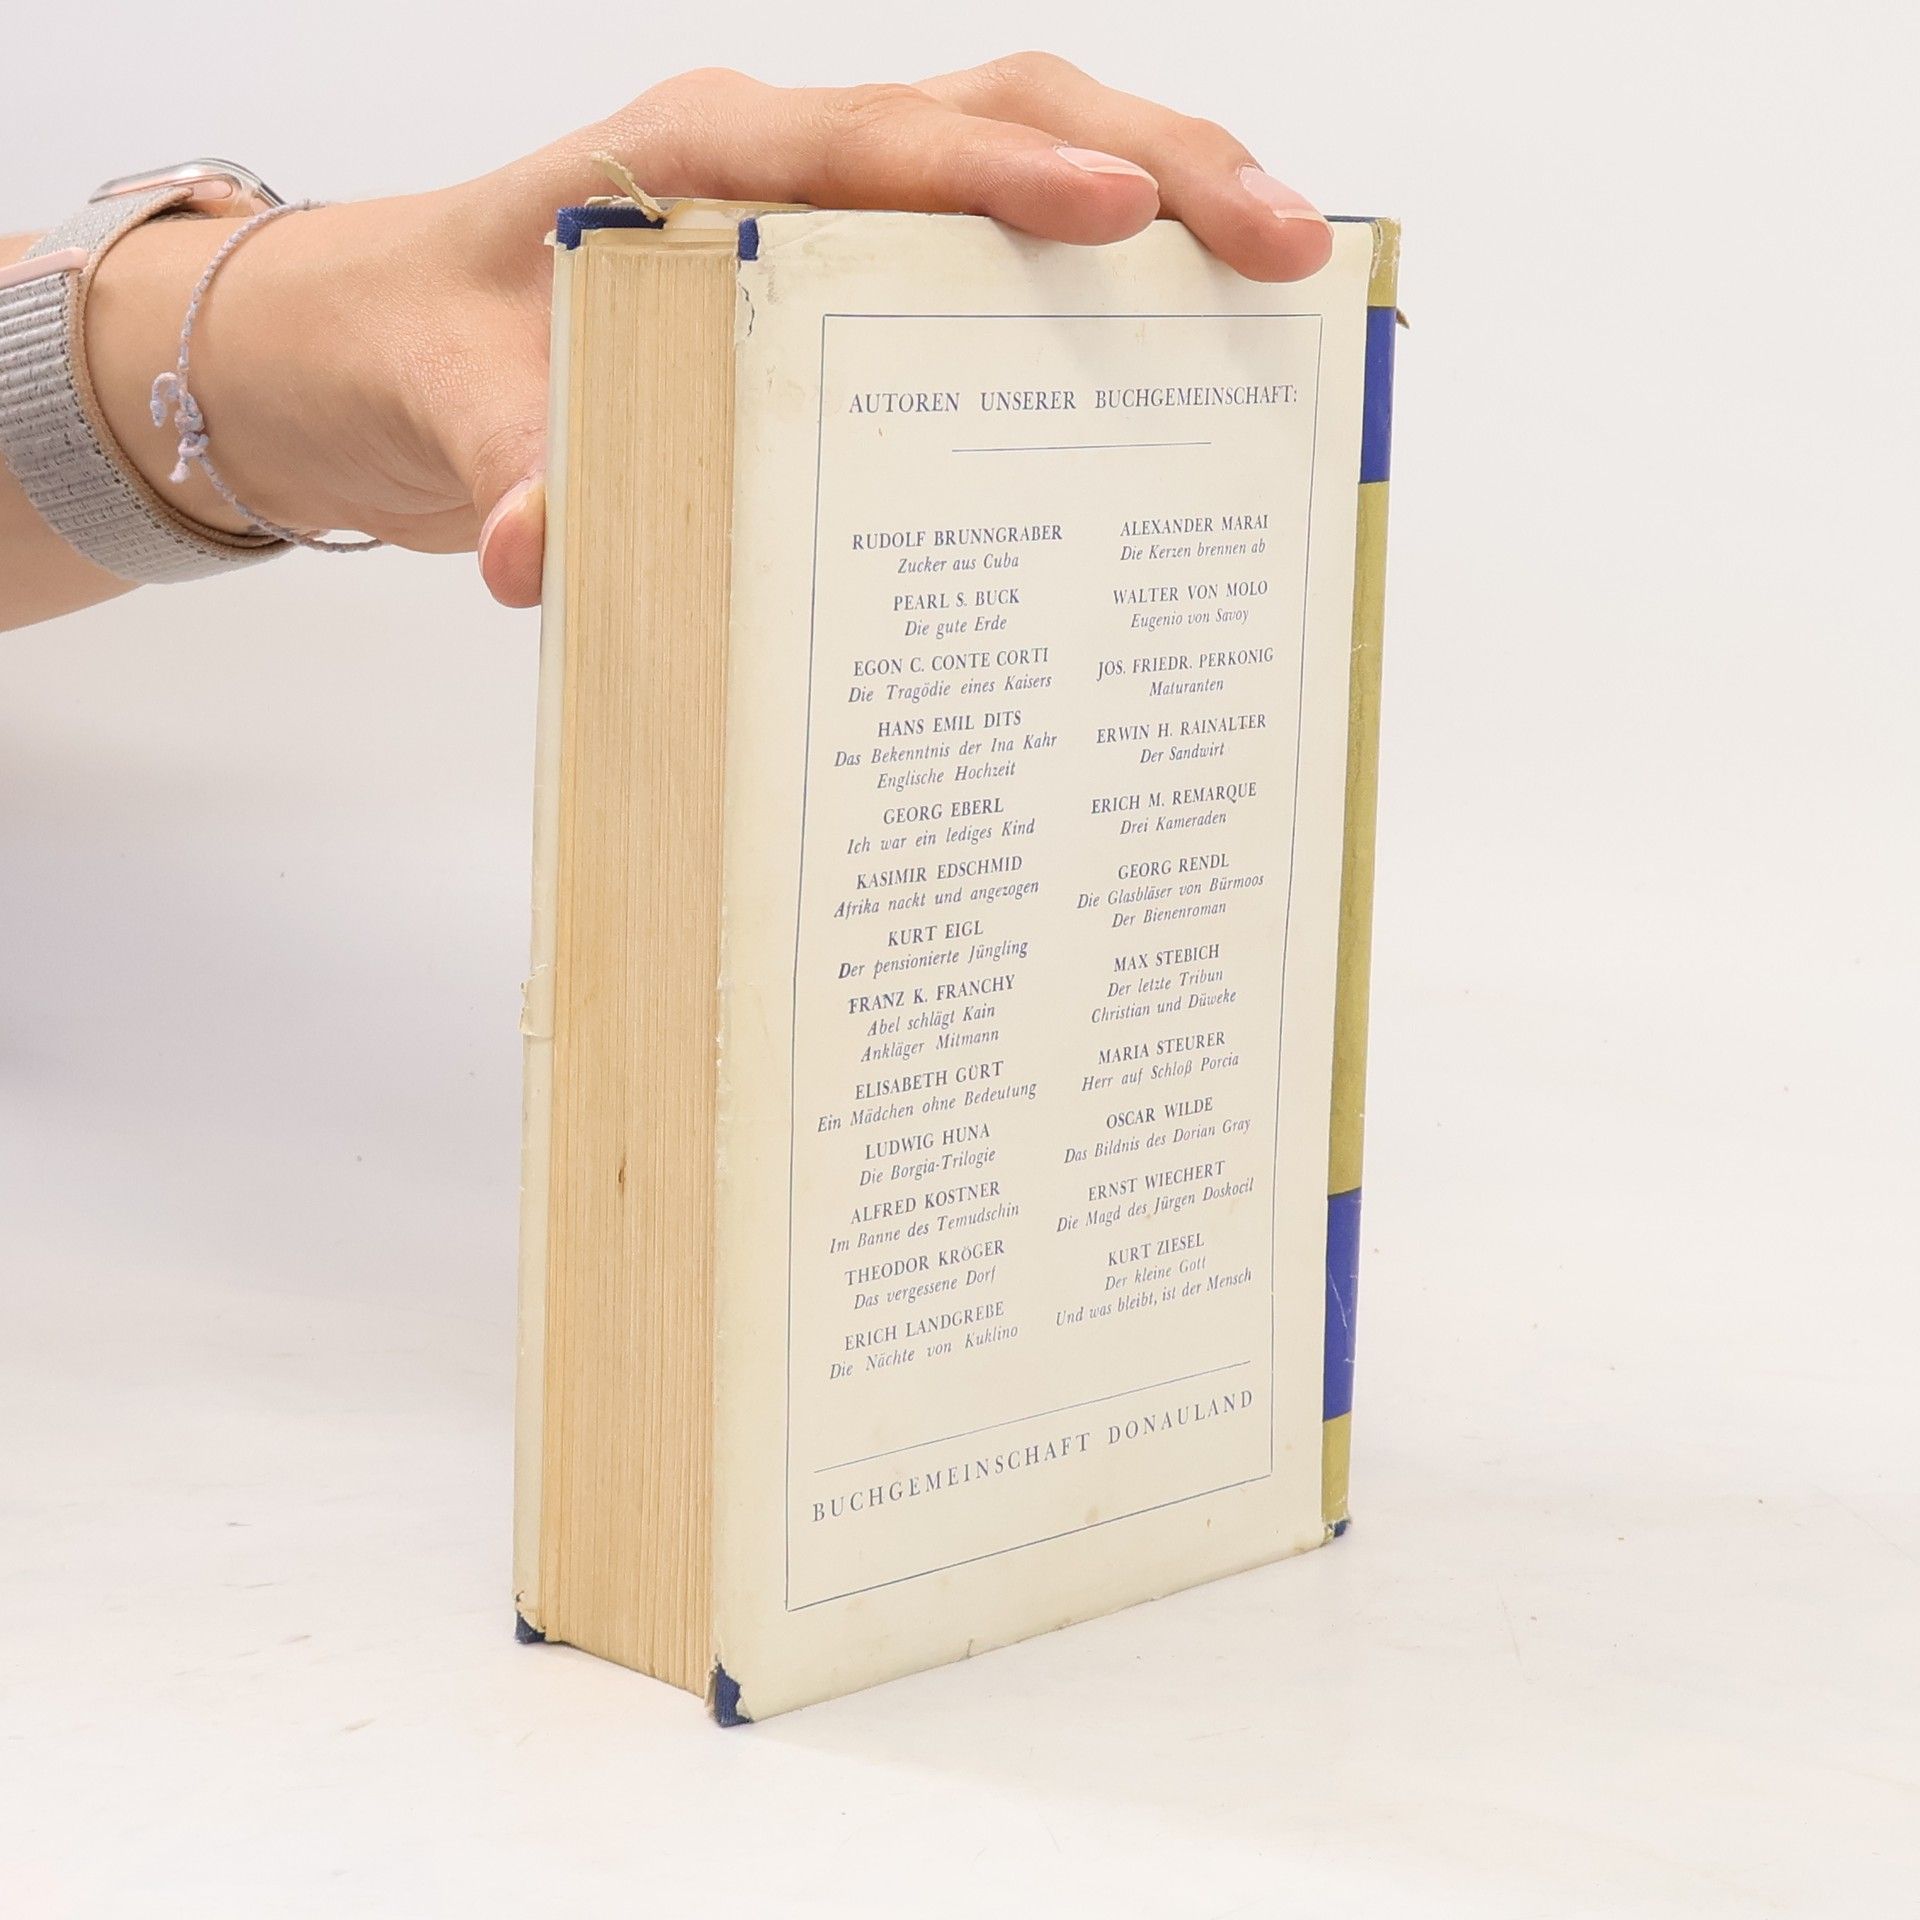 AUTOREN UNSERER BUCHGEMEINSCHAFT:
RUDOLF BRUNNGRABER
Zucker aus Cuba
PEARL S. BUCK
Die gute Erde
EGON C. CONTE CORTI
Die Tragödie eines Kaisers
HANS EMIL DITS
Das Bekenntnis der Ina Kahr
Englische Hochzeit
GEORG EBERL
Ich war ein lediges Kind
KASIMIR EDSCHMID
Afrika nackt und angezogen
KURT EIGL
Der pensionierte Jüngling
FRANZ K. FRANCHY
Abel schlägt Kain
Ankläger Mitmann
ELISABETH GÜRT
Ein Mädchen ohne Bedeutung
LUDWIG HUNA
Die Borgia-Trilogie
ALFRED KOSTNER
Im Banne des Temudschin
THEODOR KRÖGER
Das vergessene Dorf
ERICH LANDGREBE
Die Nächte von Kuklino
ALEXANDER MARAI
Die Kerzen brennen ab
WALTER VON MOLO
Eugenio von Savoy
JOS. FRIEDR. PERKONIG
Maturanten
ERWIN H. RAINALTER
Der Sandwirt
ERICH M. REMARQUE
Drei Kameraden
GEORG RENDL
Die Glasbläser von Bürmoos
Der Bienenroman
MAX STEBICH
Der letzte Tribun
Christian und Düweke
MARIA STEURER
Herr auf Schloß Porcia
OSCAR WILDE
Das Bildnis des Dorian Gray
ERNST WIECHERT
Die Magd des Jürgen Doskocil
KURT ZIESEL
Der kleine Gott
Und was bleibt, ist der Mensch
BUCHGEMEINSCHAFT DONAULAND